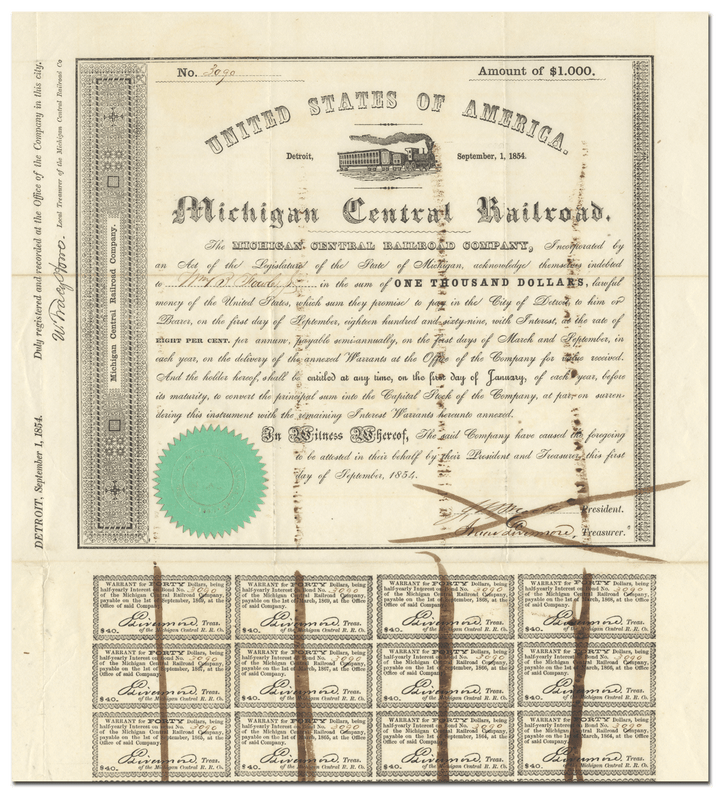 No. 3090
Amount of $1.000.
UNITED STATES OF AMERICA.
Detroit, September, 1, 1854.
Michigan Central Railroad.
The MICHIGAN CENTRAL RAILROAD COMPANY, Incorporated by
an Act of the Legislature of the State of Michigan, acknowledge themselves indebted
to in the sum of ONE THOUSAND DOLLARS, lawful
money of the United States, which sum they promise to pay in the City of Detroit, to him or
Bearer, on the first day of September, eighteen hundred and sixty-nine, with Interest, at the rate of
EIGHT PER CENT. per annum, payable semi-annually, on the first days of March and September, in
each year, on the delivery of the annexed Warrants at the Office of the Company for value received.
And the holder hereof, shall be entitled at any time, on the first day of January, of each year, before
its maturity, to convert the principal sum into the Capital Stock of the Company, at par on surren-
dering this instrument with the remaining Interest Warrants hereunto annexed.
In Witness Whereof, The said Company have caused the foregoing
to be attested in their behalf by their President and Treasurer, this first
day of September, 1854.
President.
Isaac Livermore, Treasurer.
Michigan Central Railroad Company.
DETROIT, September 1, 1854. Duly registered and recorded at the Office of the Company in this city.
Local Treasurer of the Michigan Central Railroad Co
WARRANT for FORTY Dollars, being
half-yearly Interest on Bond No. 3090
of the Michigan Central Railroad Company,
payable on the 1st of September, 1869, at the
Office of said Company.
$40. I Livermore, Treas.
of the Michigan Central R. R. Co.
WARRANT for FORTY Dollars, being
half-yearly Interest on Bond No. 3090
of the Michigan Central Railroad Company,
payable on the 1st of March, 1869, at the Office
of said Company.
$40. I Livermore, Treas.
of the Michigan Central R. R. Co.
WARRANT for FORTY Dollars, being
half-yearly Interest on Bond No. 3090
of the Michigan Central Railroad Company,
payable on the 1st of September, 1868, at the
Office of said Company.
$40. I Livermore, Treas.
of the Michigan Central R. R. Co.
WARRANT for FORTY Dollars, being
half-yearly Interest on Bond No. 3090
of the Michigan Central Railroad Company,
payable on the 1st of March, 1868, at the Office
of said Company.
$40. I Livermore, Treas.
of the Michigan Central R. R. Co.
WARRANT for FORTY Dollars, being
half-yearly Interest on Bond No. 3090
of the Michigan Central Railroad Company,
payable on the 1st of September, 1867, at the
Office of said Company.
$40. I Livermore, Treas.
of the Michigan Central R. R. Co.
WARRANT for FORTY Dollars, being
half-yearly Interest on Bond No. 3090
of the Michigan Central Railroad Company,
payable on the 1st of March, 1867, at the Office
of said Company.
$40. I Livermore, Treas.
of the Michigan Central R. R. Co.
WARRANT for FORTY Dollars, being
half-yearly Interest on Bond No. 3090
of the Michigan Central Railroad Company,
payable on the 1st of September, 1866, at the
Office of said Company.
$40. I Livermore, Treas.
of the Michigan Central R. R. Co.
WARRANT for FORTY Dollars, being
half-yearly Interest on Bond No. 3090
of the Michigan Central Railroad Company,
payable on the 1st of March, at the Office
of said Company.
$40. I Livermore, Treas.
of the Michigan Central R. R. Co.
WARRANT for FORTY Dollars, being
half-yearly Interest on Bond No. 3090
of the Michigan Central Railroad Company,
payable on the 1st of September, 1865, at the
Office of said Company.
$40. I Livermore, Treas.
of the Michigan Central R. R. Co.
WARRANT for FORTY Dollars, being
half-yearly Interest on Bond No. 3090
of the Michigan Central Railroad Company,
payable on the 1st of March, 1865, at the Office
of said Company.
$40. I Livermore, Treas.
of the Michigan Central R. R. Co.
WARRANT for FORTY Dollars, being
half-yearly Interest on Bond No. 3090
of the Michigan Central Railroad Company,
payable on the 1st of September, 1864, at the
Office of said Company.
$40. I Livermore, Treas.
of the Michigan Central R. R. Co.
WARRANT for FORTY Dollars, being
half-yearly Interest on Bond No. 3090
of the Michigan Central Railroad Company,
payable on the 1st of March, 1864, at the Office
of said Company.
$40. I Livermore, Treas.
of the Michigan Central R. R. Co.